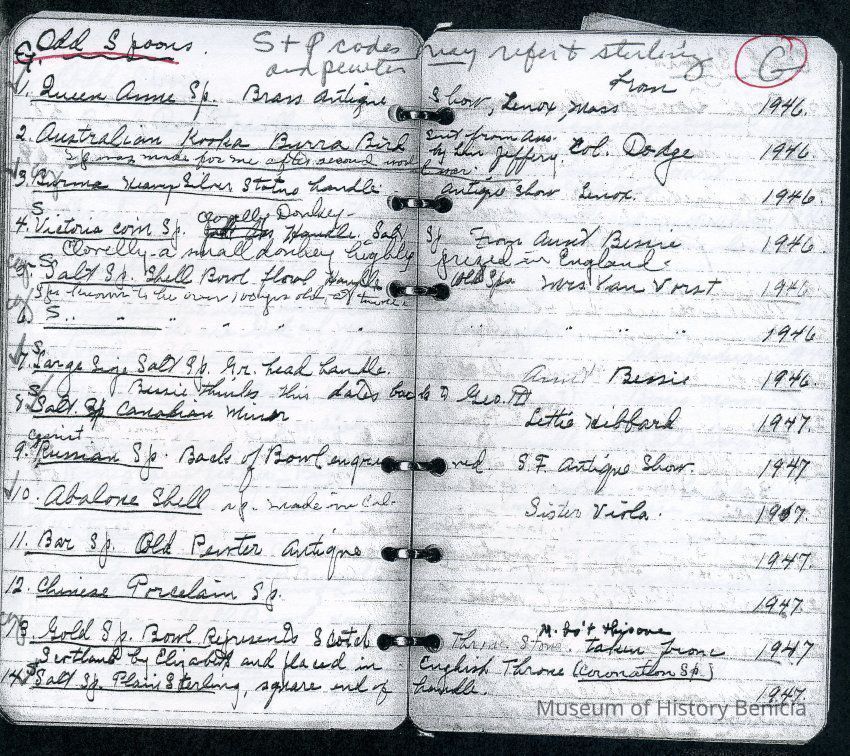 G Odd Spoons. S + P codes may refer to sterling G
and pewter
from
1. Queen Anne Sp. Brass Antique Show, Lenox, Mass 1946.
2. Australian Kooka Burra Bird sent from Aus. Col. Dodge 1946
Sp was made for me after second world war. by Jeffery.
3. Burma Heavy Silver Statue handle. Antique Show Lenox. 1946.
S Clovelly Donkey-
4. Victoria coin Sp. Handle. Salt Sp From Aunt Bessie 1946
Clovelly - a small donkey highly prized in England.
5. S Salt Sp. Shell Bowl floral Handle Old Spa Mrs Van Vorst 1946
Spa known to be over 100 yrs old,
6. S " " " " " " " " 1946
S
7. Large Size Salt Sp. Gr. head handle. Aunt Bessie 1946
Bessie thinks this dates back to Geo. III
8. Salt Sp Canadian Minor Lettie Hibbard 1947.
9. Russian Sp. Back of Bowl engraved S.F. Antique Show. 1947
10. Abalone Shell sp. made in Cal. Sister Viola. 1947.
11. Bar Sp. Old Pewter Antique 1947.
12. Chinese Porcelain Sp. 1947.
13. Gold Sp. Bowl Represents Scotch Throne Stone. taken from 1947
Scotland by Elizabeth and placed in English Throne (Coronation Sp.)
14. Salt Sp. Plain Sterling, square end of handle. 1947.
Museum of History Benicia